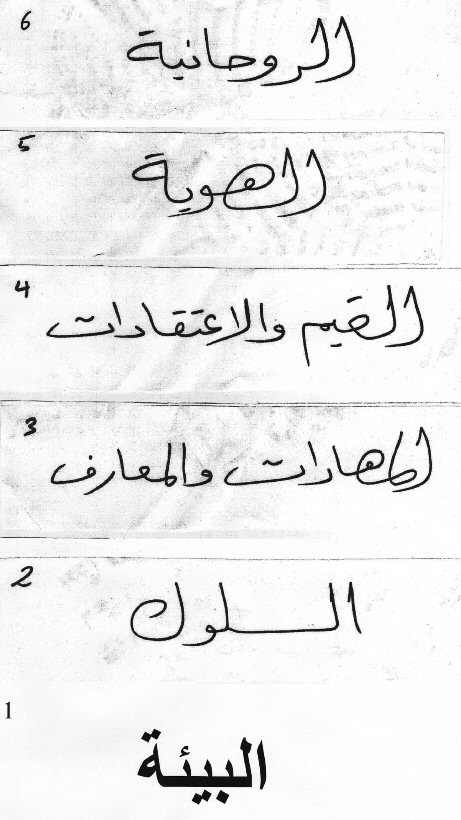 6 الروحانية
5 الهوية
4 القيم والاعتقادات
3 المهارات والمعارف
2 السلوك
1 البيئة